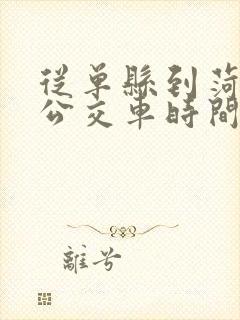 從單縣到菏
公交車時間
離兮